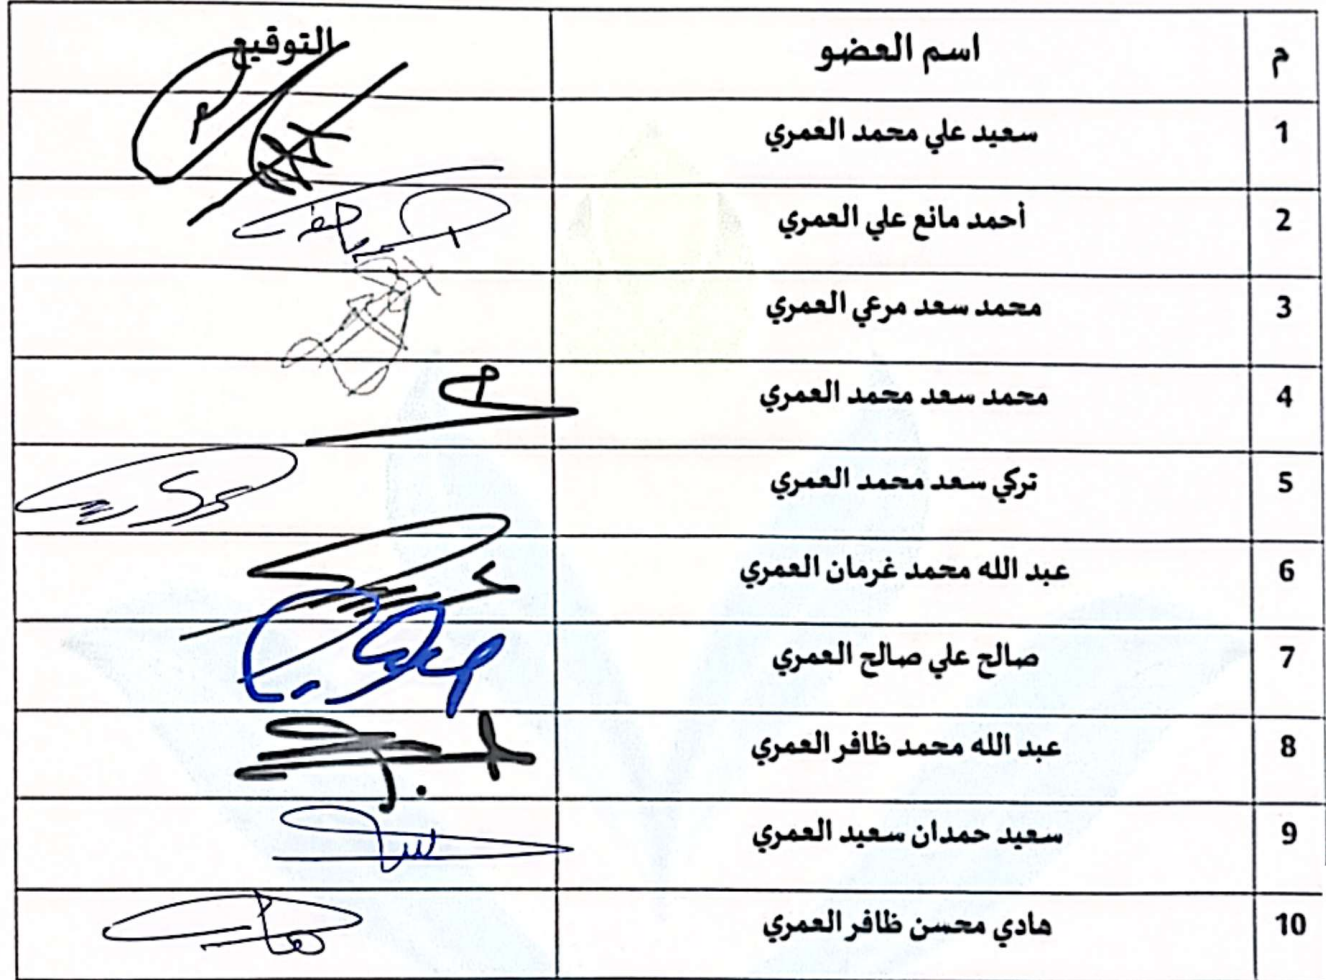 م اسم العضو التوقيع
1 سعيد علي محمد العمري
2 أحمد مانع علي العمري
3 محمد سعد مرعي العمري
4 محمد سعد محمد العمري
5 تركي سعد محمد العمري
6 عبد الله محمد غرمان العمري
7 صالح علي صالح العمري
8 عبد الله محمد ظافر العمري
9 سعيد حمدان سعيد العمري
10 هادي محسن ظافر العمري